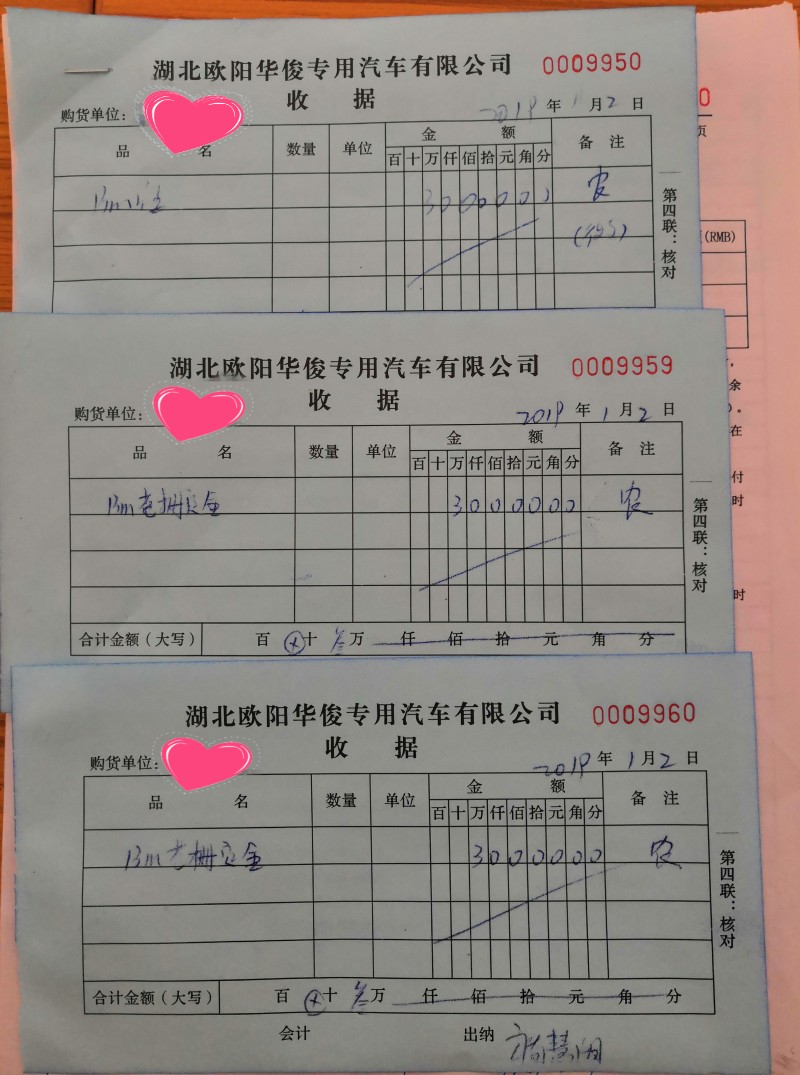 湖北欧阳华俊专用汽车有限公司 0009950
收 据
购货单位: 2019 年 1 月 2 日
品 名 数量 单位 金 额 备 注
百 十 万 仟 佰 拾 元 角 分
3000000 农
第四联：核对
0
页
(RMB)
湖北欧阳华俊专用汽车有限公司 0009959
收 据
购货单位: 2019 年 1 月 2 日
品 名 数量 单位 金 额 备 注
百 十 万 仟 佰 拾 元 角 分
13m 栅定金 3000000 农
第四联：核对
合计金额（大写） 百 十 叁万 仟 佰 拾 元 角 分
余
在
付
时
时
湖北欧阳华俊专用汽车有限公司 0009960
收 据
购货单位: 2019 年 1 月 2 日
品 名 数量 单位 金 额 备 注
百 十 万 仟 佰 拾 元 角 分
13m 栅定金 3000000 农
第四联：核对
合计金额（大写） 百 十 叁万 仟 佰 拾 元 角 分
会计 出纳